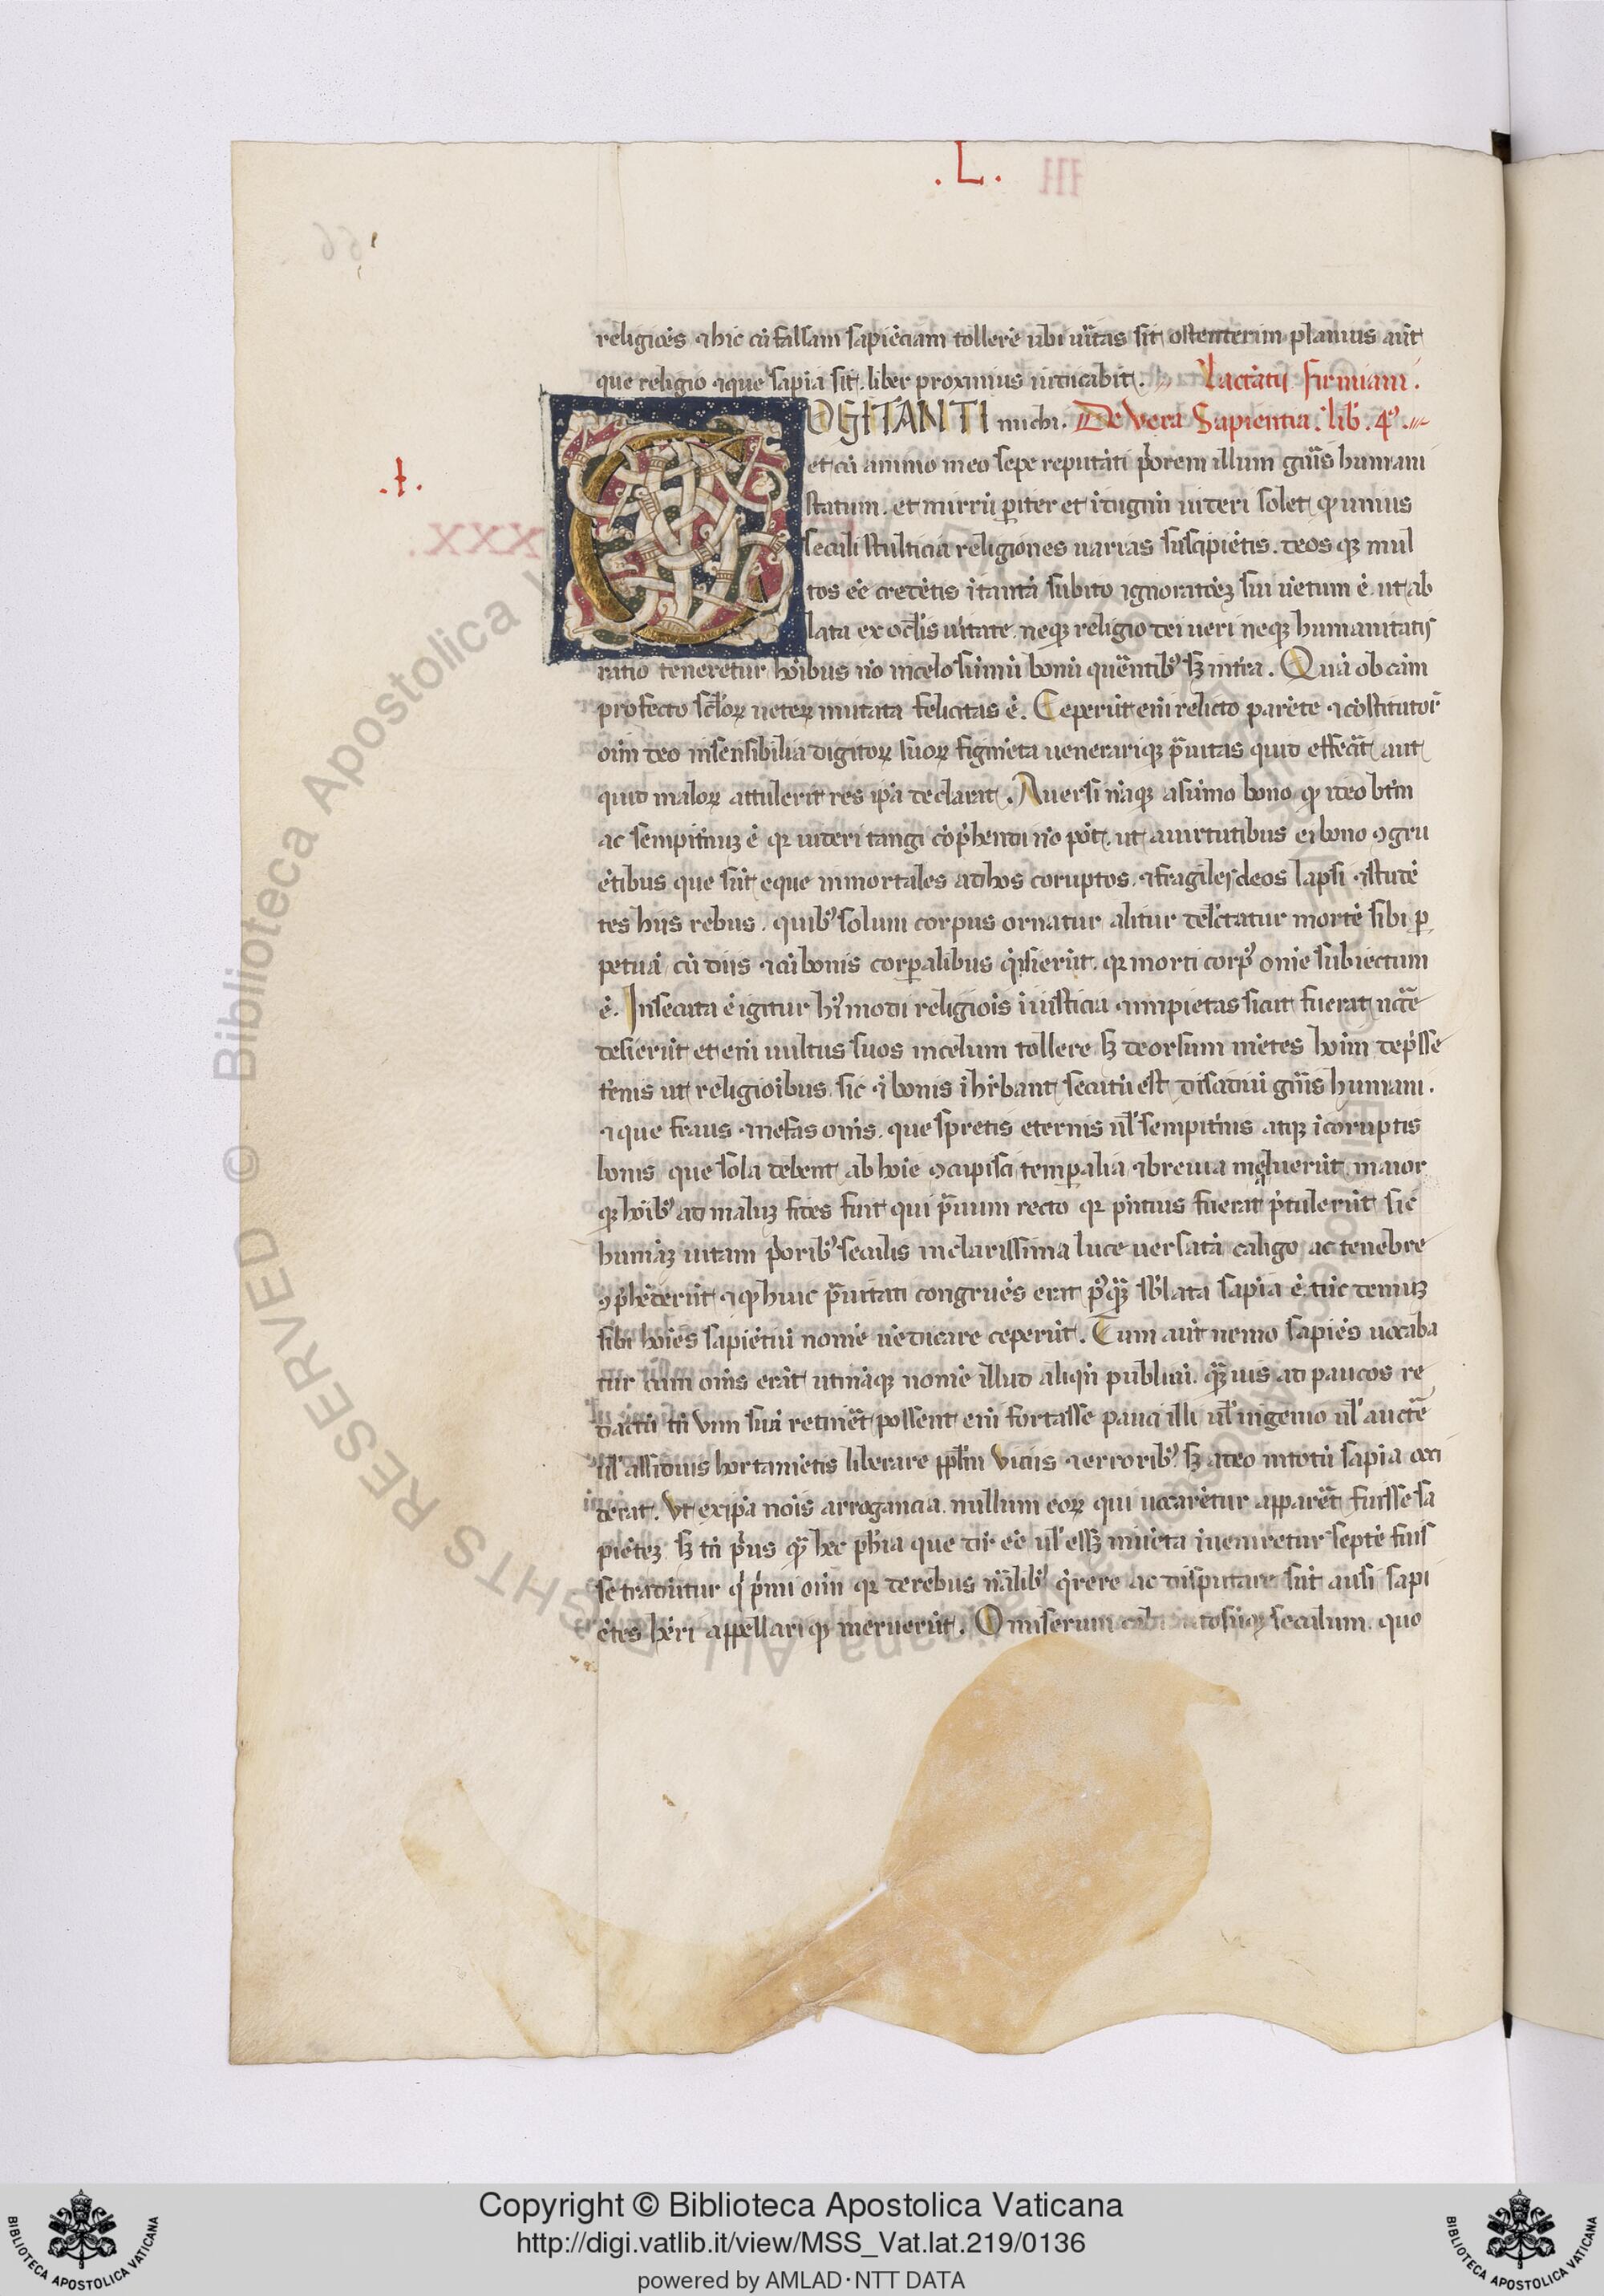 .L.
religiões ⁊ hic cū falsam sapiēciam tollerē ubi uītas sit ostenterim planius aūt
que religio ⁊ que sapīa sit. liber proximus indicabit. Lactātij firmiani.
COGITANTI michi. De Vera Sapientia. lib. 4ꝰ.
et cū animo meo sepe reputāti p̄orem illum gn̄is humani
statum. et mirrū ꝑiter et īdignū uideri solet ꝙ unius
seculi stulticia religiones uarias suscipiētis. deos qꝫ mul
.I.
tos eē credētis ītantā subito ignorātiaꝫ sui uētum ē. ut ab
lata ex oclīs uītate. neqꝫ religio dei ueri neqꝫ humanitatis
ratio teneretur hoībus nō in celo sūmū bonū querētibꝰ sꝫ in tīra. Quā ob cām
profecto sclōꝝ ueteꝝ mutata felicitas ē. Ceperūt enī relicto parēte ⁊ cōstitutor̄
oīm deo insensibilia digitoꝝ suoꝝ figmēta uenerariqꝫ p̄uitas quid effecīt aut
quid maloꝝ attulerit res ip̄a declarat. Auersi nāqꝫ a sūmo bono ꝙ ideo btm̄
ac sempitnūꝫ ē qꝛ uideri tangi cōp̄hendi nō pōt. ut a uirtutibus ei bono ꝯgru
ētibus que sūt eque inmortales ad hos coruptos. ⁊ fragiles deos lapsi ⁊ studē
tes hiis rebus. quibꝰ solum corpus ornatur alitur delc̄tatur mortē sibi ꝑ
petuā cū diis ⁊ cū bonis corꝑalibus q̄sierūt. qꝛ morti corpꝰ omē subiectum
ē. Insecuta ē igitur hꝰmodi religiōis īiusticia ⁊ impietas sicut fuerat nc̄cē
desierūt et enī uultus suos in celum tollere sꝫ deorsum mētes hoīm dep̄sse
tēnis ut religioībus. sic ⁊ bonis ī hr̄bant secutū est disidiū gn̄is humani.
⁊ que fraus ⁊ nefas omīs. que spretis eternis ul̄ sempitn̄is atqꝫ īcoruptis
bonis que sola debent ab hoīe ꝯcupisci temꝑalia ⁊ breuia maluerūt maior
qꝫ hoībꝰ ad maluꝫ fides fuit qui p̄uum recto qꝛ p̄ntius fuerat p̄tulerūt sic
humāꝫ uitam p̄oribꝰ seculis in clarissima luce uersatā caligo ac tenebre
ꝯp̄hēderūt ⁊ ꝙ huic p̄uitati congruēs erat pꝰqꝫ sb̄lata sapīa ē. tūc demuꝫ
sibi hoīes sapiētiū nomē uēdicare ceperūt. Tum aūt nemo sapiēs uocaba
tur cum omīs erāt utināqꝫ nomē illud aliqn̄ publicū. qꝫuis ad paucos re
dactū tn̄ uim sui retinēt possent enī fortasse pauci illi ul̄ ingenio ul̄ auctē
ul̄ assiduis hortamētis liberare ppl̄m uiciis ⁊ erroribꝰ sꝫ adeo in totū sapīa occi
derat. Vt ex ip̄a nōis arrogancia. nullum eoꝝ qui uocarētur apparēt fuisse sa
piētēꝫ sꝫ tn̄ p̄us qꝫ hec ph̄ia que dr̄ eē ul̄ essꝫ inuēta inueniretur septē fuis
se tradūtur q̄ p̄mi oīm qꝛ de rebus nālibꝰ q̄rere ac disputare sūt ausi sapi
ētes hēri appellari qꝫ meruerūt. O miserum calamitosūqꝫ seculum. quo
Copyright © Biblioteca Apostolica Vaticana
http://digi.vatlib.it/view/MSS_Vat.lat.219/0136
powered by AMLAD·NTT DATA
BIBLIOTECA APOSTOLICA VATICANA
BIBLIOTECA APOSTOLICA VATICANA